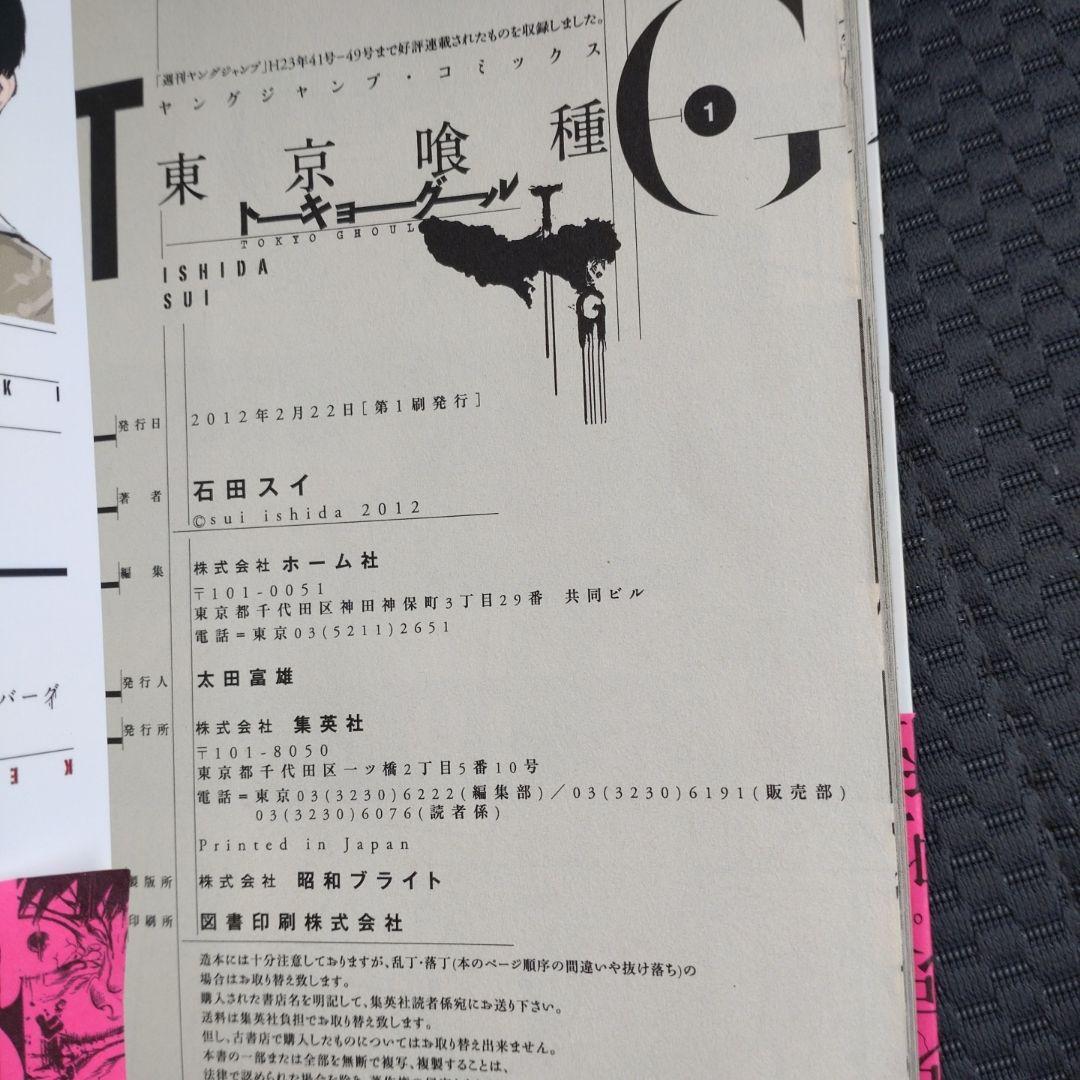 「週刊ヤングジャンプ」H23年41号–49号まで好評連載されたものを収録しました。
ヤングジャンプ・コミックス
T
G
1
東京喰種
トーキョーグール
TOKYO GHOUL
T
G
ISHIDA
SUI
発行日
2012年2月22日[第1刷発行]
著者
石田スイ
©sui ishida 2012
編集
株式会社 ホーム社
〒101-0051
東京都千代田区神田神保町3丁目29番 共同ビル
電話=東京03(5211)2651
発行人
太田富雄
発行所
株式会社 集英社
〒101-8050
東京都千代田区一ツ橋2丁目5番10号
電話=東京03(3230)6222(編集部)／03(3230)6191(販売部)
03(3230)6076(読者係)
Printed in Japan
製版所
株式会社 昭和ブライト
印刷所
図書印刷株式会社
造本には十分注意しておりますが、乱丁・落丁(本のページ順序の間違いや抜け落ち)の
場合はお取り替え致します。
購入された書店名を明記して、集英社読者係宛にお送り下さい。
送料は集英社負担でお取り替え致します。
但し、古書店で購入したものについてはお取り替え出来ません。
本書の一部または全部を無断で複写、複製することは、
K I
バーグ
K E